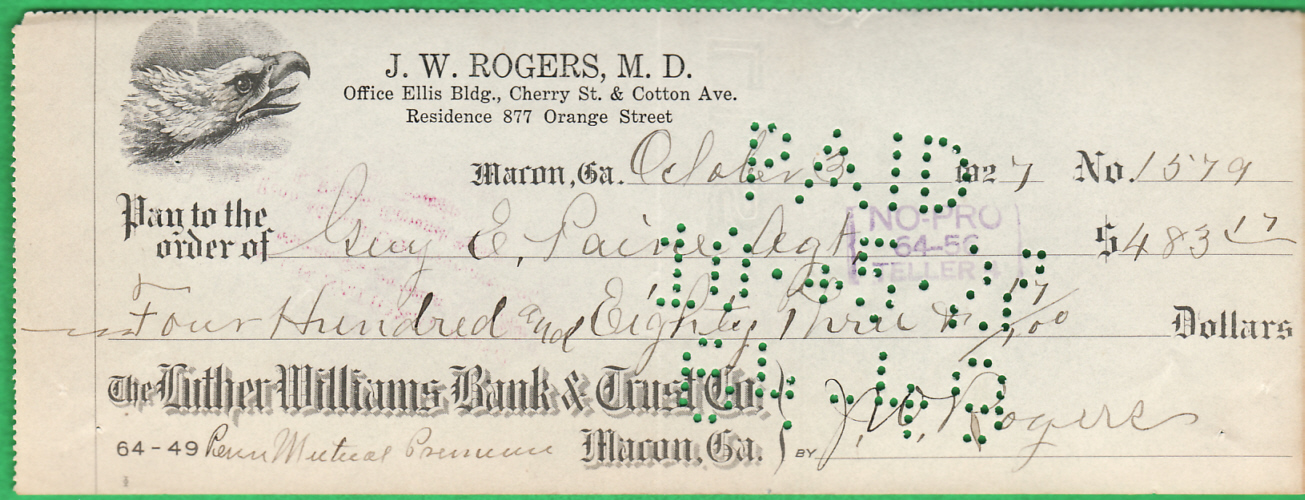 J. W. ROGERS, M. D.
Office Ellis Bldg., Cherry St. & Cotton Ave.
Residence 877 Orange Street
Macon, Ga. October 3 1927 No. 1579
PAID
Pay to the order of Guy E. Paine Agt $483 17
NO-PRO
64-56
TELLER
Four Hundred and Eighty Three & 17/100 Dollars
The Luther Williams Bank & Trust Co.
64-49 Penn Mutual Premium Macon, Ga. BY J. W. Rogers